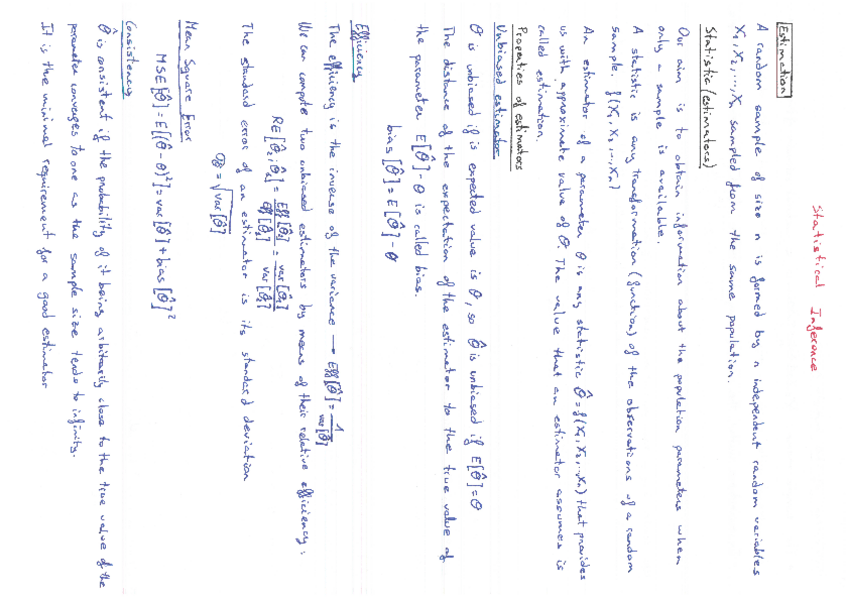 Statistical Inference
Estimation
A random sample of size n is formed by n independent random variables
X₁, X₂, ..., Xₙ sampled from the same population.
Statistic (estimators)
Our aim is to obtain information about the population parameters when
only a sample is available.
A statistic is any transformation (function) of the observations of a random
sample. f(X₁, X₂, ..., Xₙ)
An estimator of a parameter θ is any statistic θ̂ = f(X₁, X₂, ..., Xₙ) that provides
us with approximate value of θ. The value that an estimator assumes is
called estimation.
Properties of estimators
Unbiased estimator
θ̂ is unbiased if is expected value is θ, so θ̂ is unbiased if E[θ̂] = θ
The distance of the expectation of the estimator to the true value of
the parameter E[θ̂] - θ is called bias.
bias[θ̂] = E[θ̂] - θ
Efficiency
The efficiency is the inverse of the variance → Eff[θ̂] = 1/var[θ̂]
We can compute two unbiased estimators by means of their relative efficiency:
RE[θ̂₂, θ̂₁] = Eff[θ̂₂]/Eff[θ̂₁] = var[θ̂₁]/var[θ̂₂]
The standard error of an estimator is its standard deviation
σθ̂ = √var[θ̂]
Mean Square Error
MSE[θ̂] = E[(θ̂ - θ)²] = var[θ̂] + bias[θ̂]²
Consistency
θ̂ is consistent if the probability of it being arbitrarily close to the true value of the
parameter converges to one as the sample size tends to infinity.
It is the minimal requirement for a good estimator